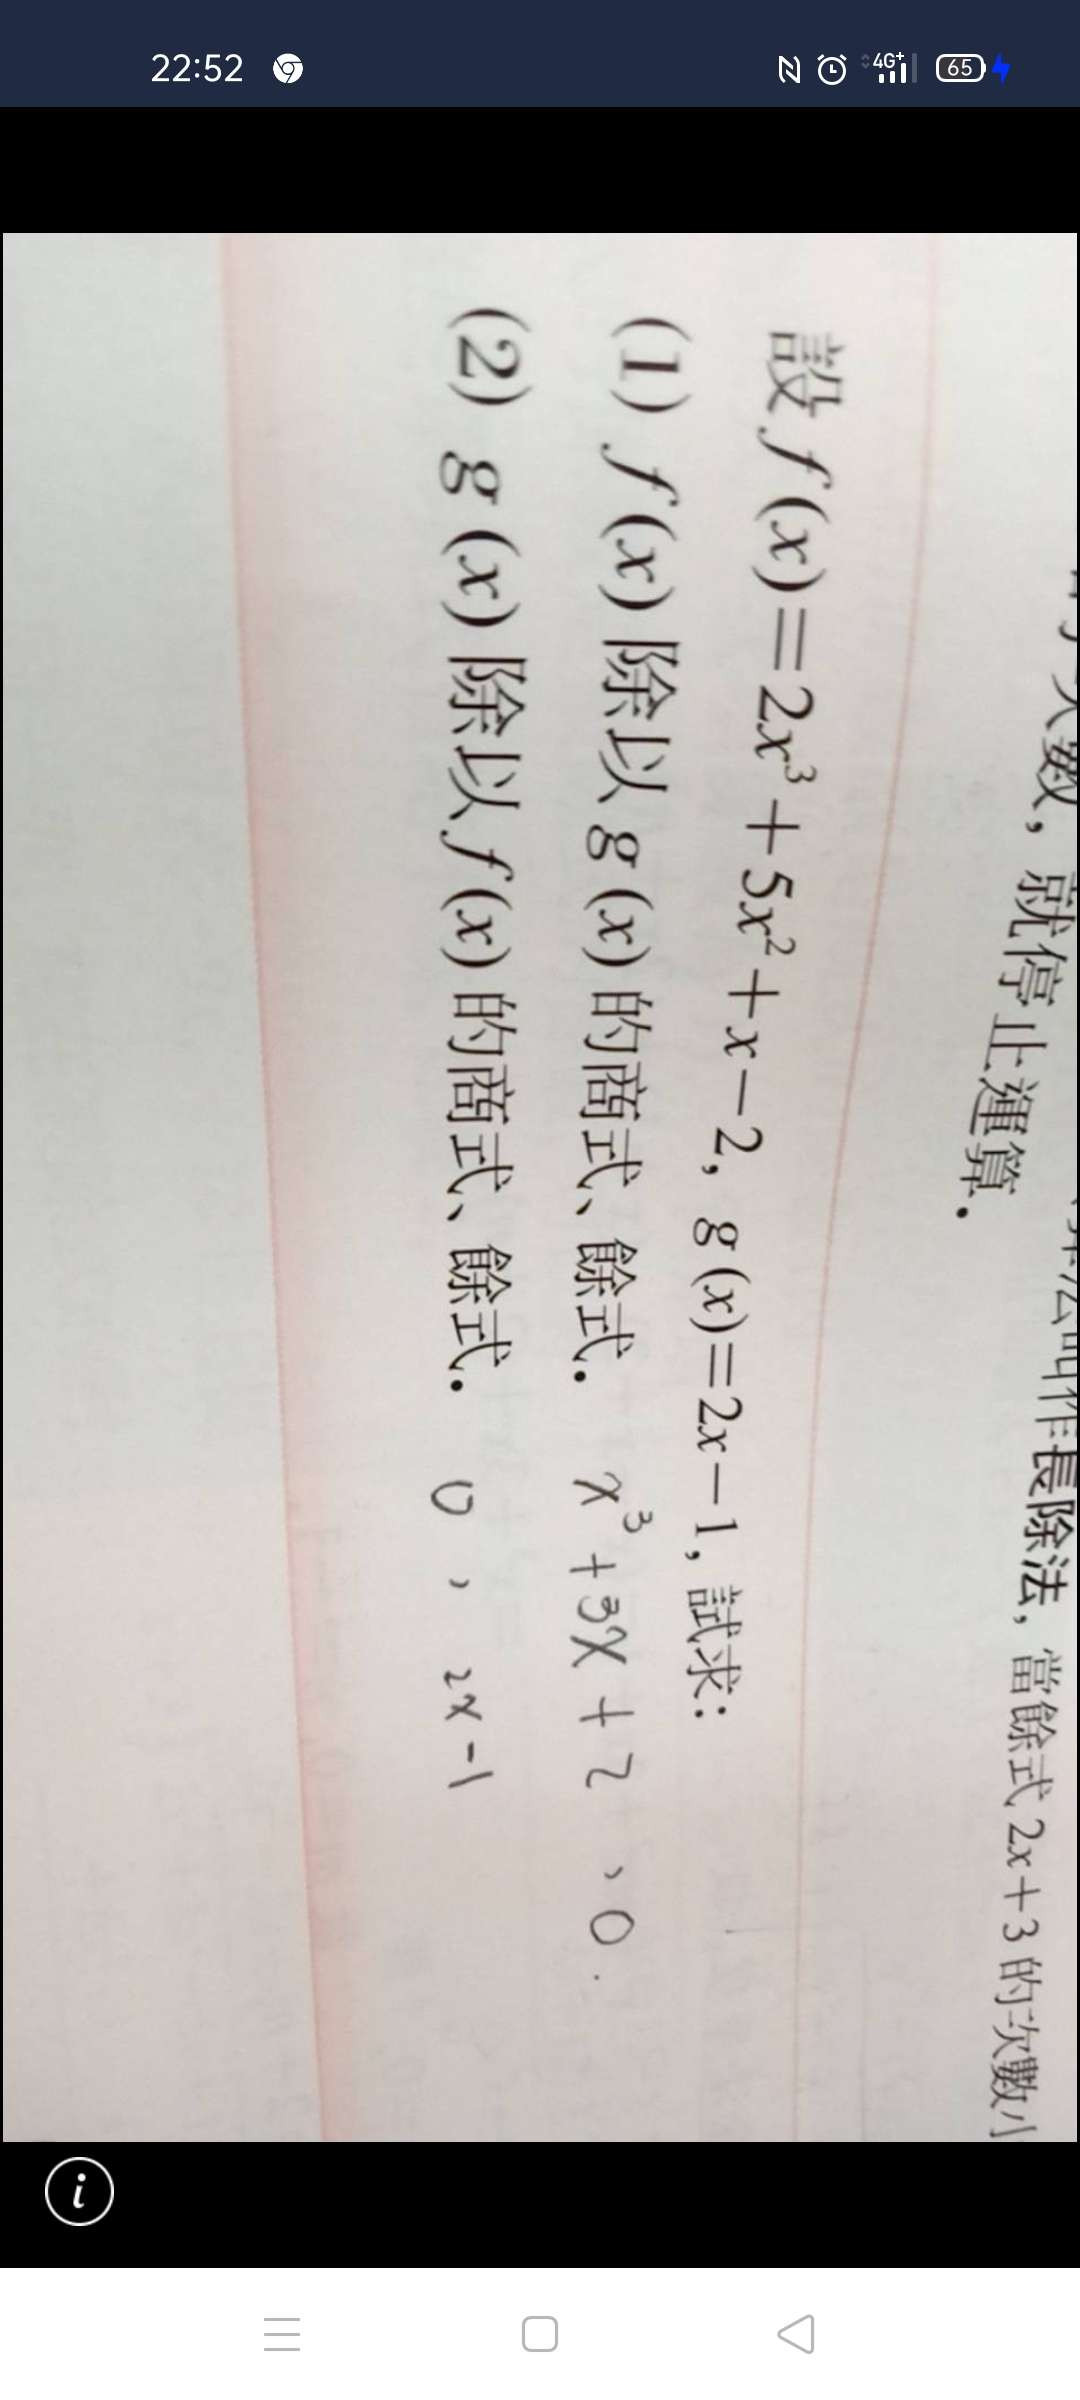 22:52
4G+ 65
當餘式 2x+3 的次數小
次數, 就停止運算.
設 f(x)=2x³+5x²+x-2, g(x)=2x-1, 試求:
(1) f(x) 除以 g(x) 的商式、餘式. x³+3x+2、0.
(2) g(x) 除以 f(x) 的商式、餘式. 0、2x-1
i